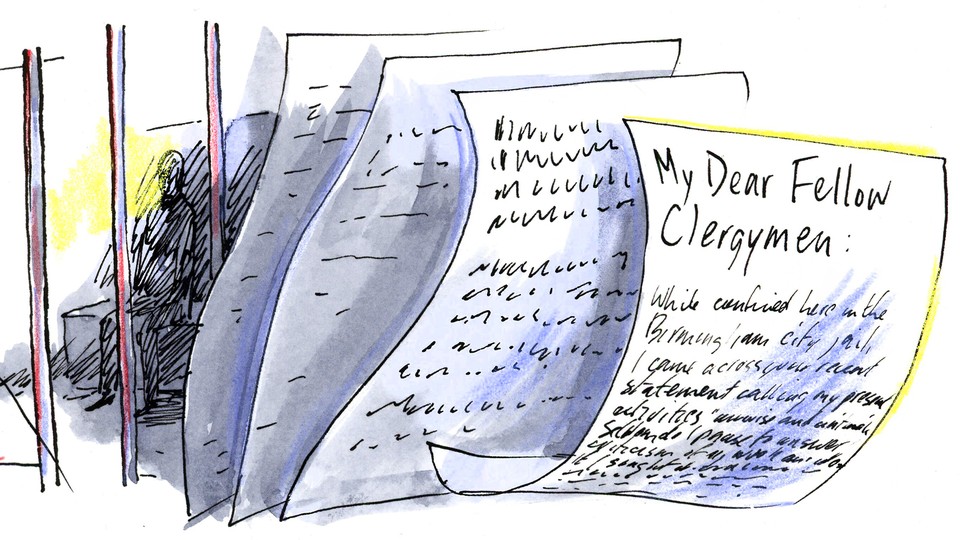 My Dear Fellow
Clergymen:
While confined here in the
Birmingham city jail,
I came across your recent
statement calling my present
activities
Seldom do I pause to answer
criticism of my work and